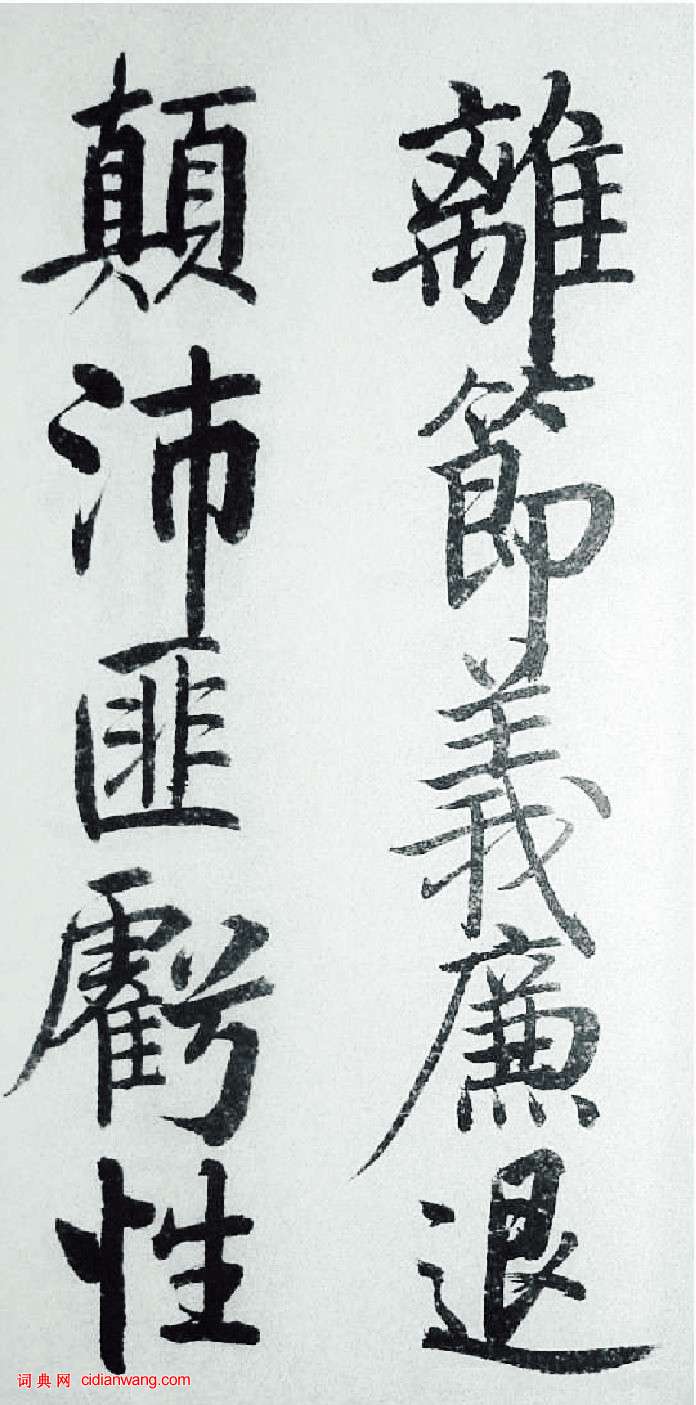 離節義廉退
顛沛匪虧性
词典网 cidianwang.com